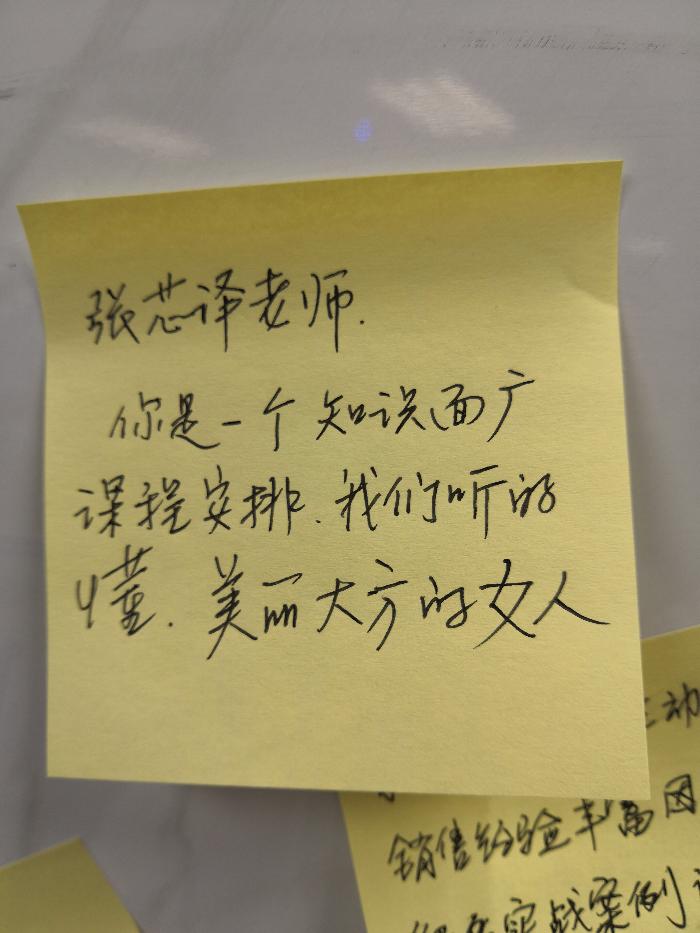 张芯译老师.
你是一个知识面广
课程安排.我们听的
懂.美丽大方的女人
动
销售经验丰富因
实战案例